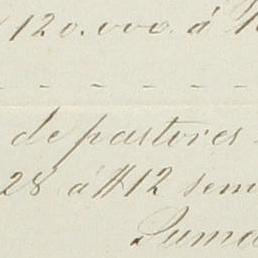 120.000 á
- - - - - -
de pastores -
28 á #12 sem
Suma